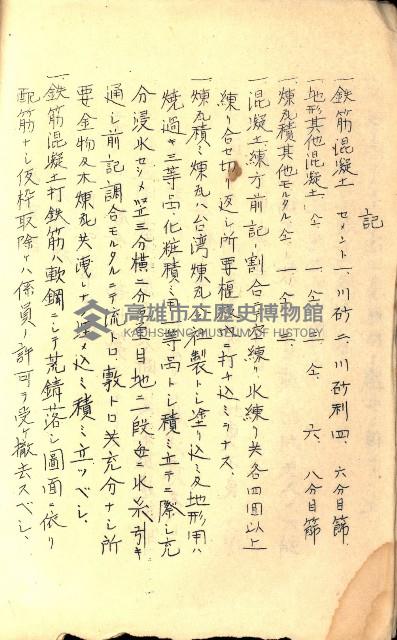 記
一、鉄筋混凝土 セメント一、川砂二、川砂利四、六分目篩
一、地形其他混凝土 仝 一、仝 三、仝 六、八分目篩
一、煉瓦積其他モルタル仝 一、仝 三、
一、混凝土練方前記ノ割合ニテ空練リ水練リ共各四回以上
練リ合セ切リ返シ所要櫃 ニ打チ込ミヲナス、
一、煉瓦積ミ煉瓦ハ台湾煉瓦 製トシ塗リ込ミ及地形用ハ
焼過キ三等品、化粧積ミ用 等品トシ積ミ立テニ際シ充
分浸水セシメ竪三分横二分 目地ニ段毎ニ水糸引キ
通シ前記調合モルタルニテ流トロ、敷トロ共充分ナシ所
要金物及木煉瓦共洩レナク 込ミ積ミ立ツベシ、
一、鉄筋混凝土打鉄筋ハ軟鋼ニシテ荒錆落シ圖面ニ依リ
配筋ナシ仮枠取除ケハ係員ノ許可ヲ受ケ撤去スベシ、
高雄市立歷史博物館
KAOHSIUNG MUSEUM OF HISTORY